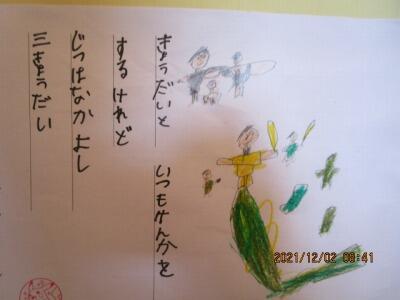 きょうだいと いつもけんかを
するけれど
じつはなかよし
三きょうだい
2021/12/02 09:41